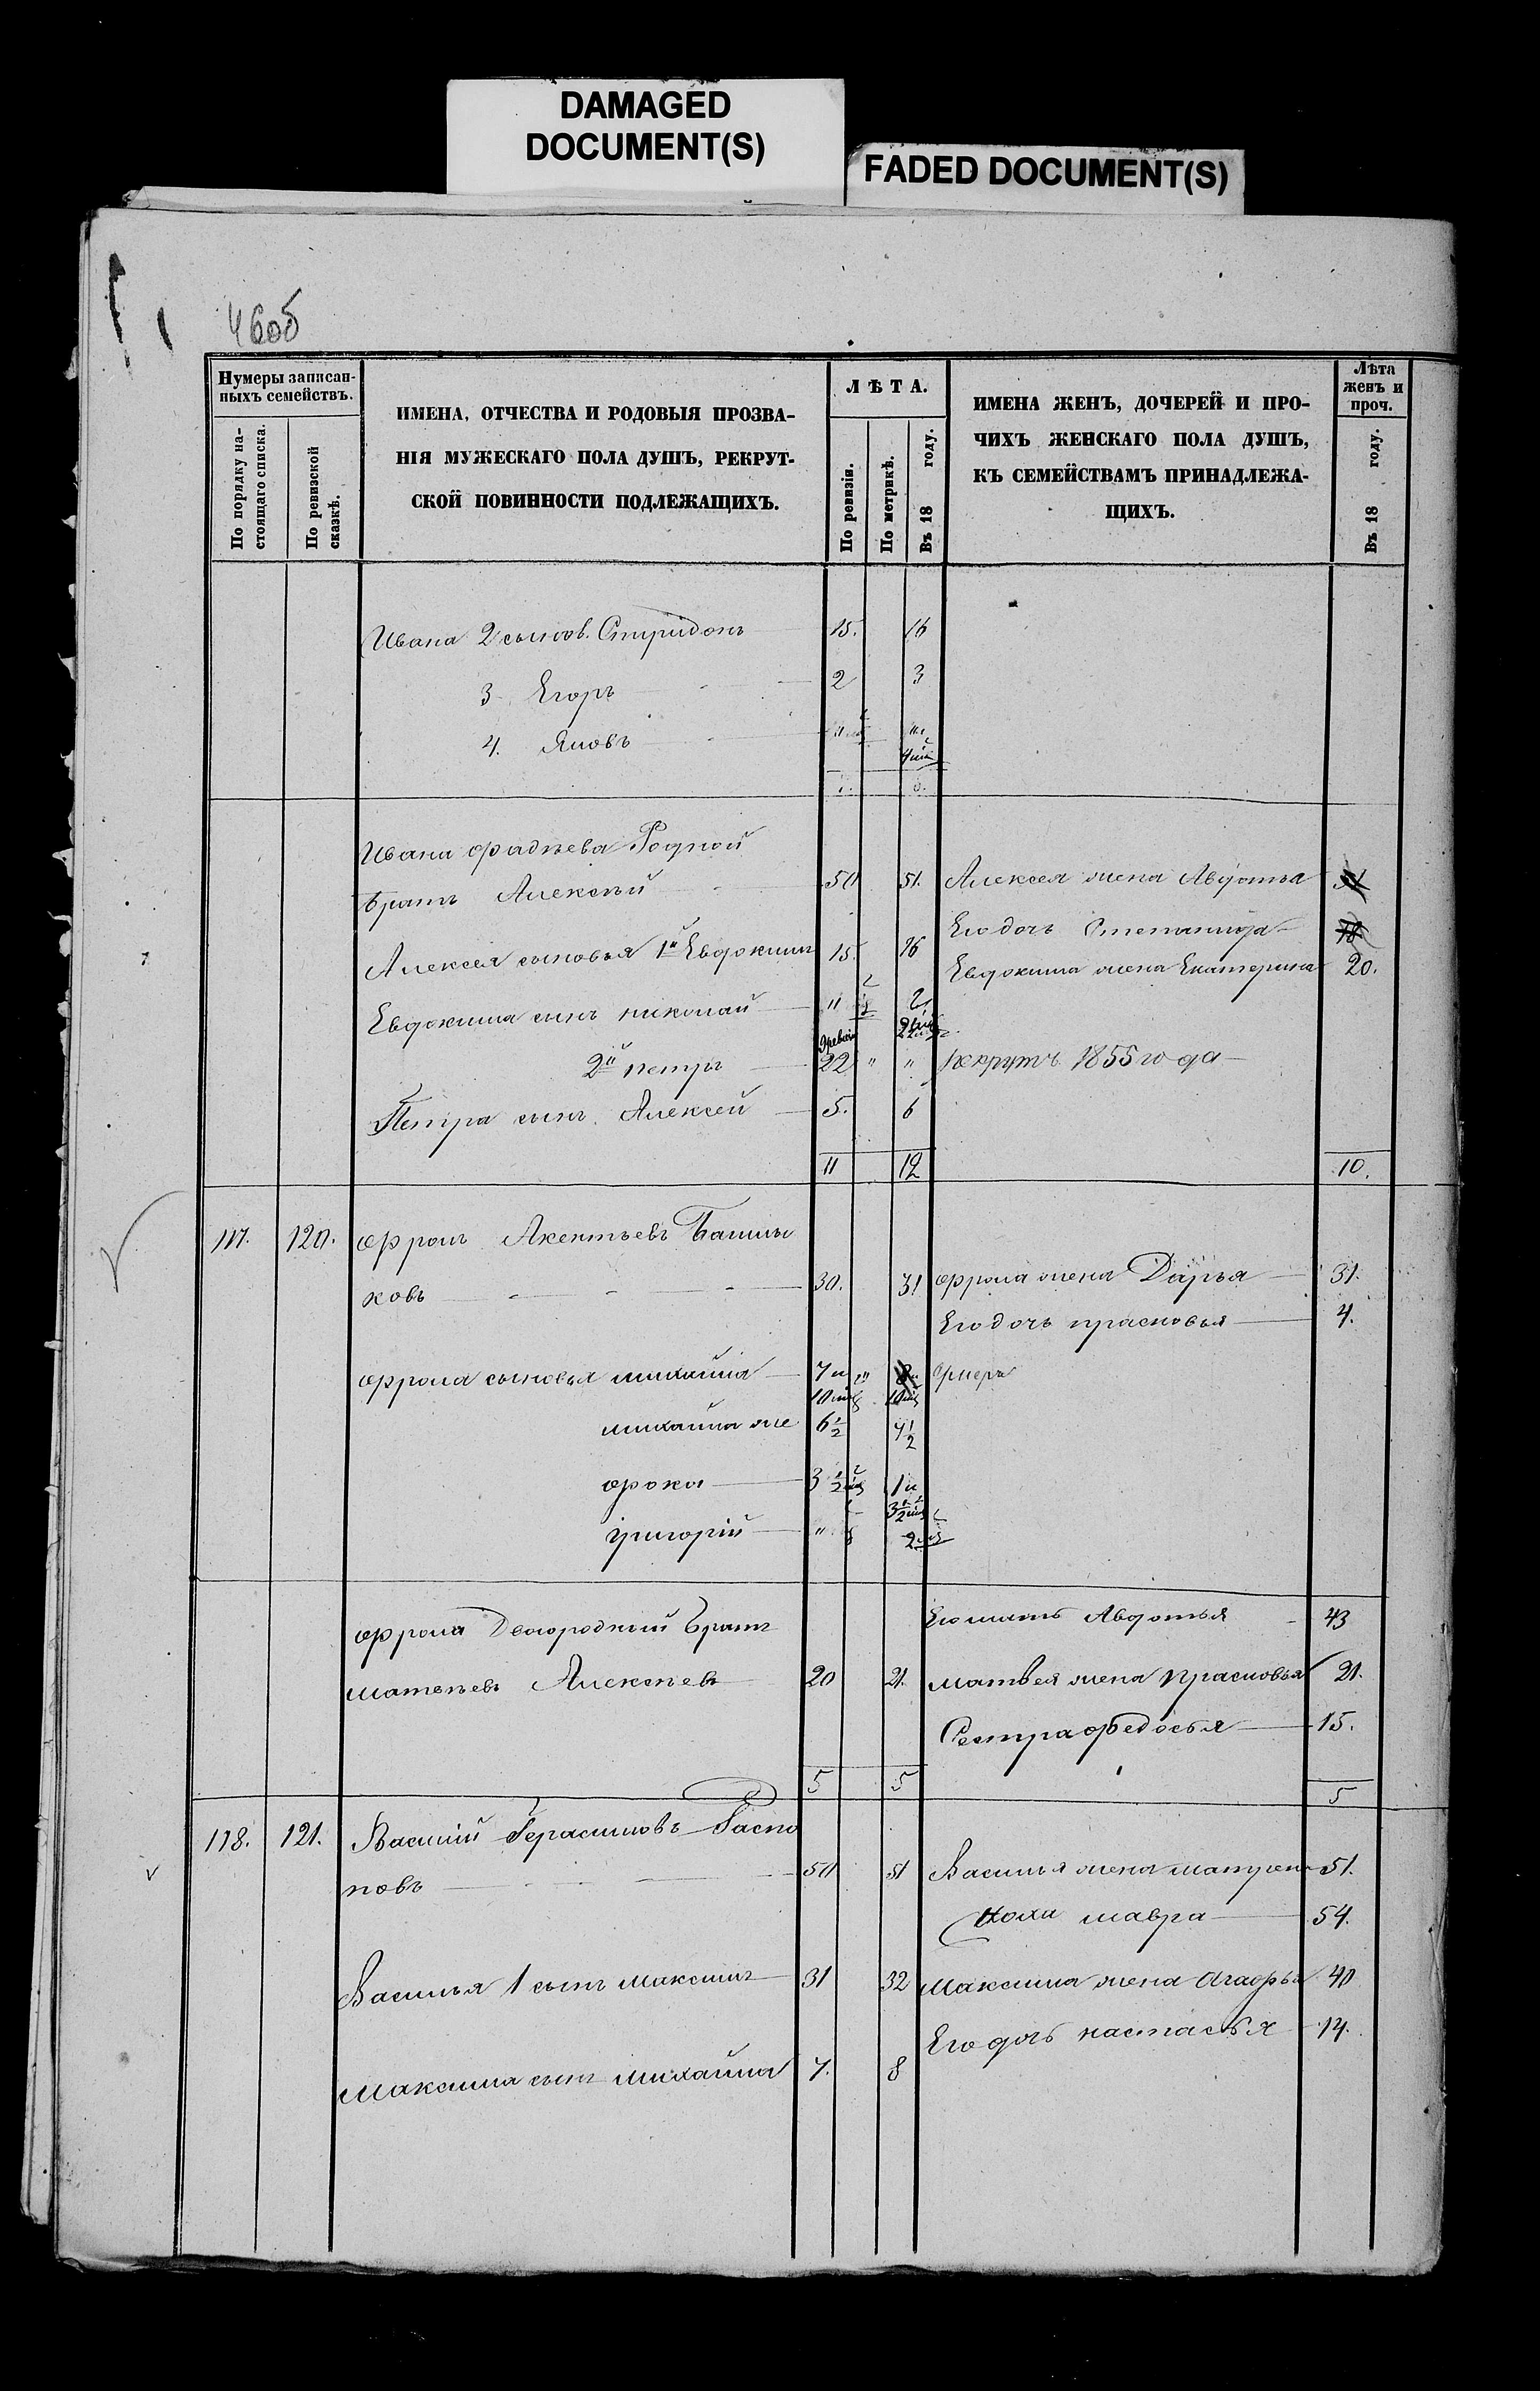 DAMAGED
DOCUMENT(S)
FADED DOCUMENT(S)
460б
Нумеры записан-
ныхъ семействъ.
По порядку на-
стоящаго списка.
По ревизской
сказкѣ.
ИМЕНА, ОТЧЕСТВА И РОДОВЫЯ ПРОЗВА-
НІЯ МУЖЕСКАГО ПОЛА ДУШЪ, РЕКРУТ-
СКОЙ ПОВИННОСТИ ПОДЛЕЖАЩИХЪ.
ЛѢТА.
По ревизіи.
По метрикѣ.
Въ 18 году.
ИМЕНА ЖЕНЪ, ДОЧЕРЕЙ И ПРО-
ЧИХЪ ЖЕНСКАГО ПОЛА ДУШЪ,
КЪ СЕМЕЙСТВАМЪ ПРИНАДЛЕЖА-
ЩИХЪ.
Лѣта
женъ и
проч.
Въ 18 году.
Ивана 2 сынов. Спиридонъ 15. 16
3 Егоръ 2 3
4. Яковъ
Ивана фадѣева Родной
братъ Алексѣй 50 51. Алексея жена Авдотья
Его дочь Степанида
Алексея сыновья 1й Евдокимъ 15. 16
Евдокима жена Екатерина 20.
Евдокима сынъ николай
2й петръ 22 " " рекрутъ 1855 года
Петра сынъ Алексей 5. 6
11 12 10.
117. 120. фролъ Акентьевъ Башлы
ковъ 30. 31 фрола жена Дарья 31.
Его дочь прасковья 4.
фрола сыновья михайла 7 и умеръ
10 10
михайла же 6½ 7½
фока 3½ 1 и
григорій "
Его мать Авдотья 43
фрола Двоюродный братъ
матвѣевъ Алексѣевъ 20 21. матвея жена прасковья 21.
Сестра федосья 15.
5 5 5
118. 121. Василий Герасимовъ Распо
повъ 50 51 Василья жена матрена 51.
мавра 54.
Василья 1 сынъ максимъ 31 32 максима жена Агафья 40
Его дочь настасья 14.
максима сынъ михайла 7. 8